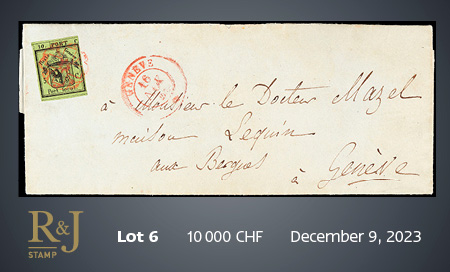 10 PORT C
GENEVE
16
à Monsieur le Docteur Mazel
maison Sequin
aux Bergues
à Genève
R&J
STAMP
Lot 6 10 000 CHF December 9, 2023